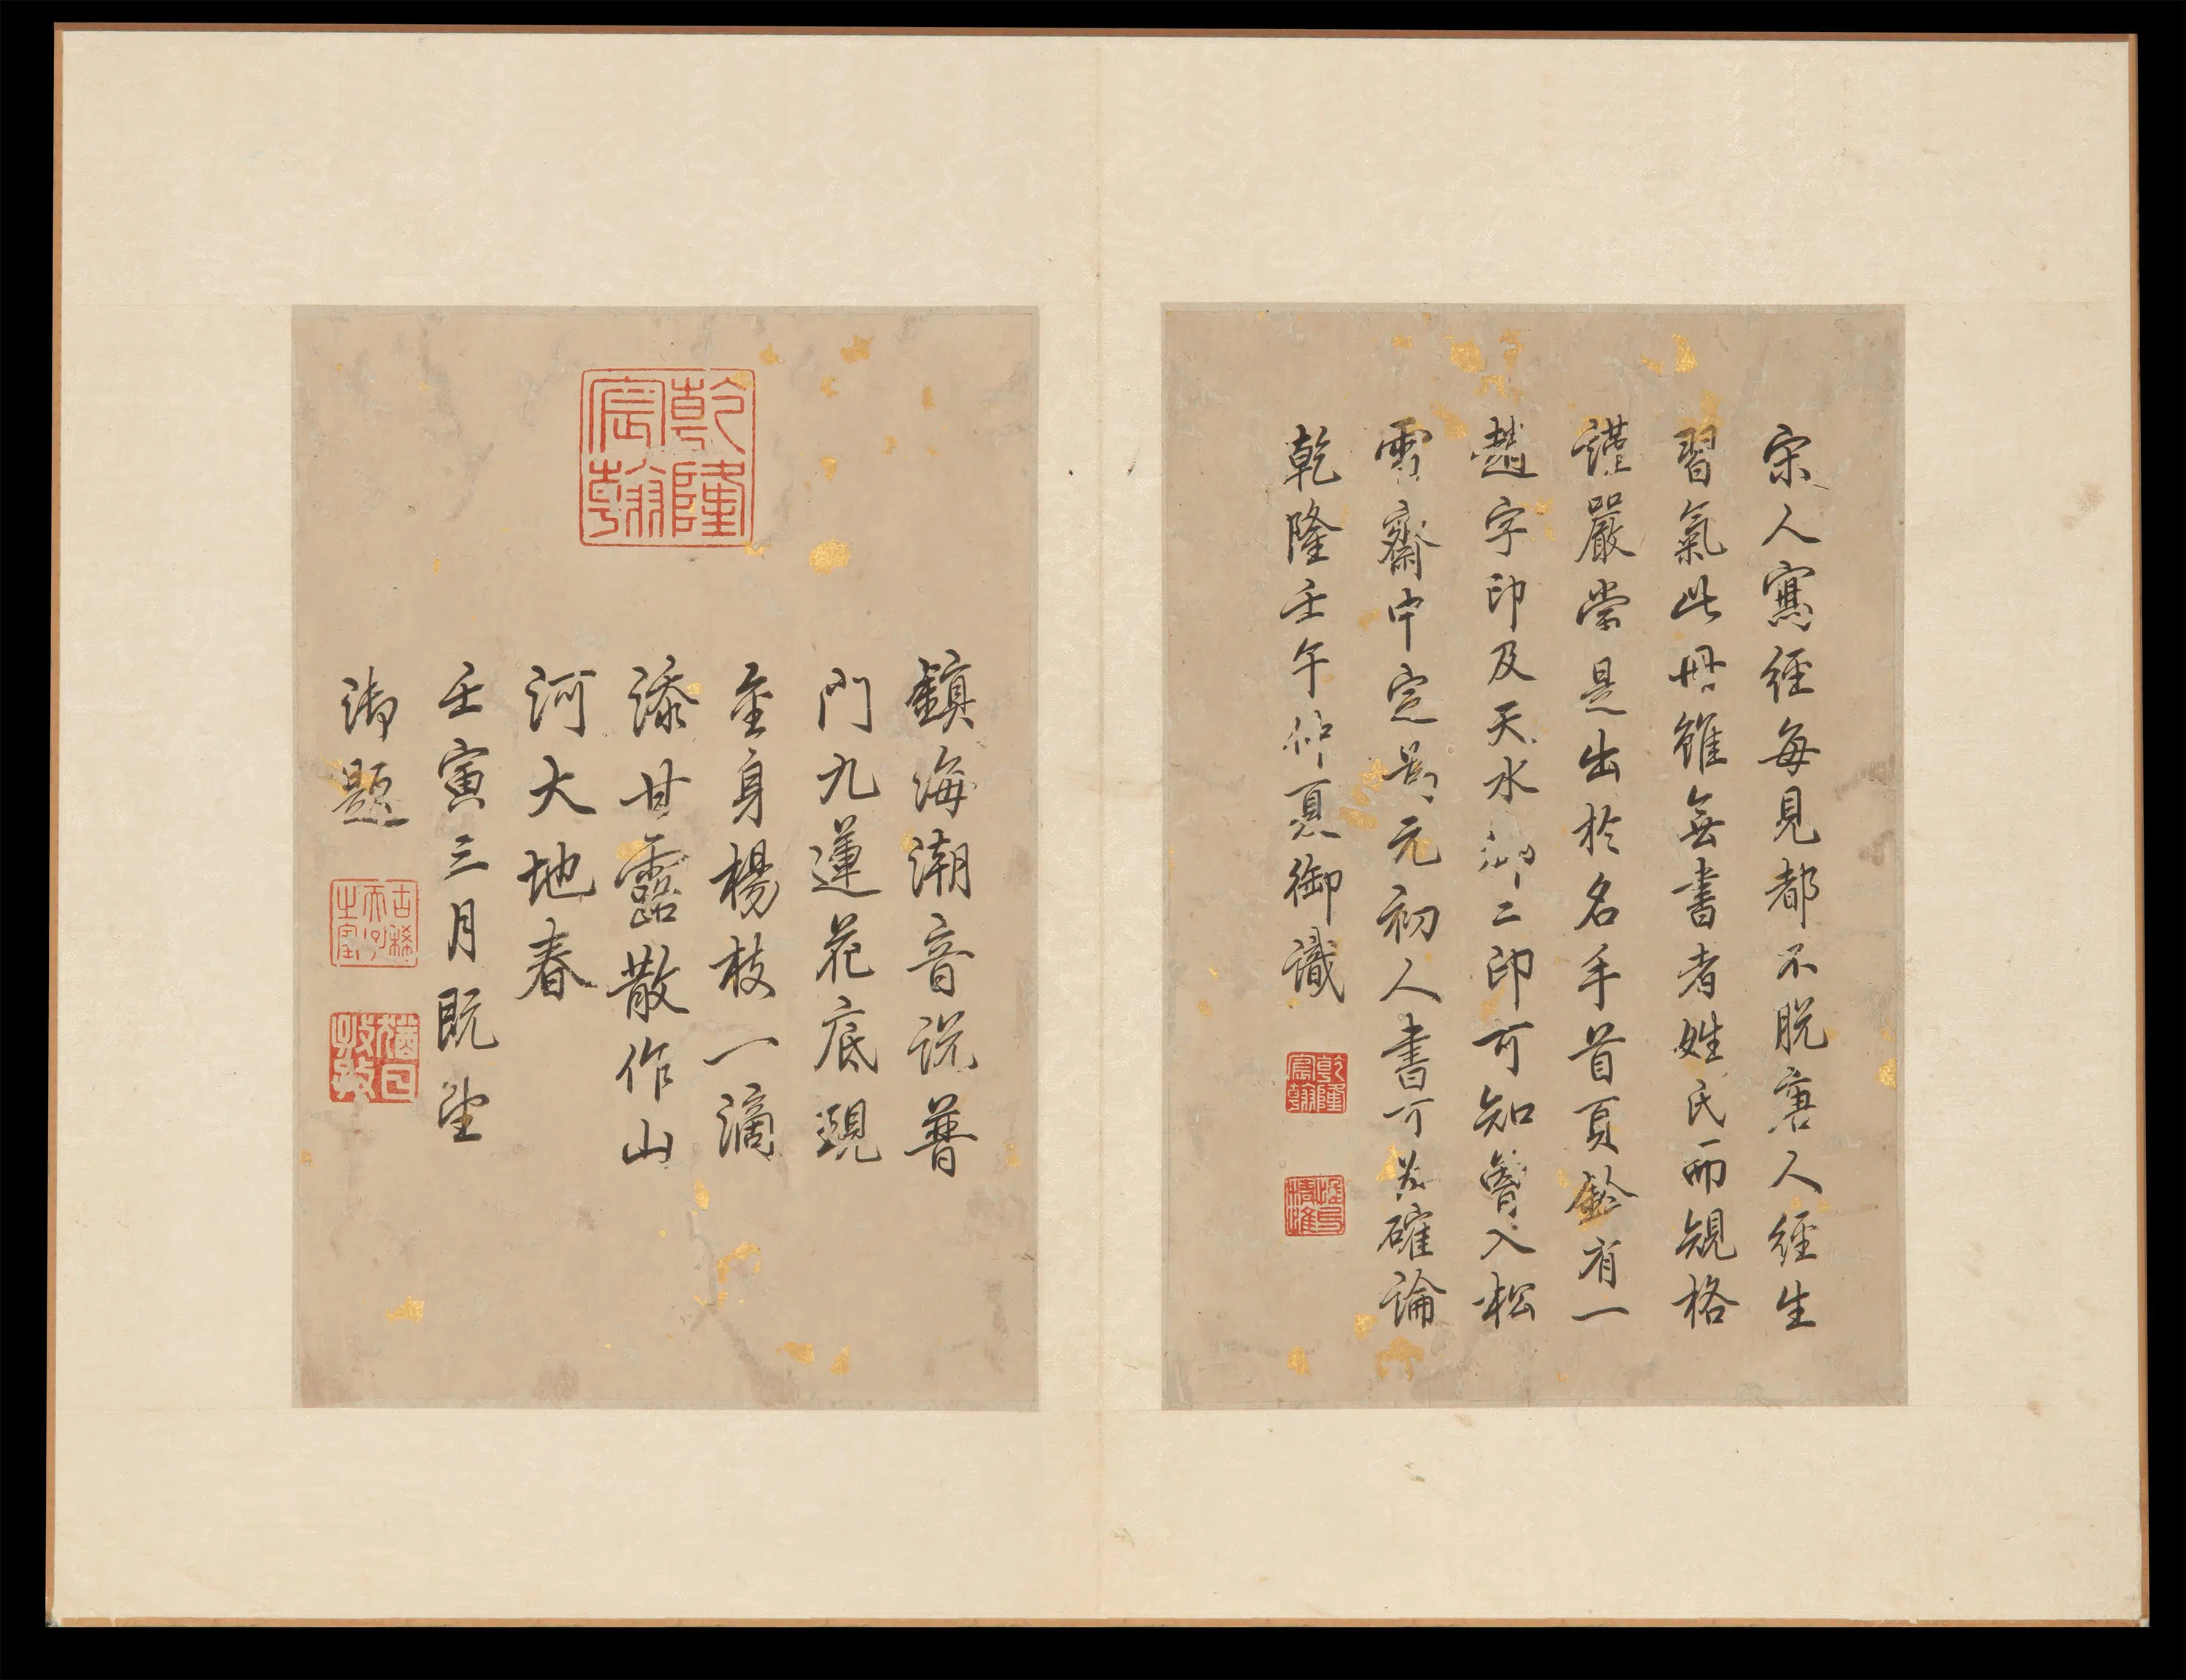 宋人寫經每見都不脫唐人經生
習氣此冊雖無書者姓氏而規格
謹嚴當是出於名手首頁鈐有一
趙字印及天水郡二印可知曾入松
雪齋中定為元初人書可為確論
乾隆壬午仲夏御識
乾隆
宸翰
惟幾
惟精
乾隆
宸翰
鎮海潮音說普
門九蓮花底現
金身楊枝一滴
添甘露散作山
河大地春
壬寅三月既望
御題
古稀
天子
之寶
猶日
孜孜